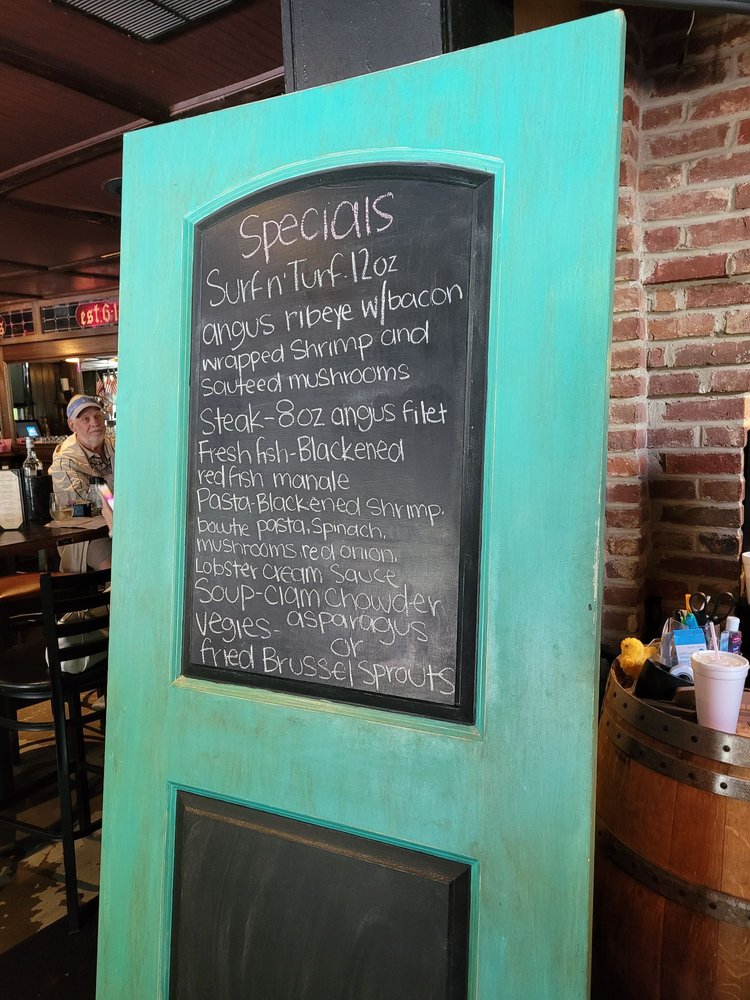 Specials
Surf n' Turf. 12oz
angus ribeye w/bacon
wrapped Shrimp and
sauteed mushrooms
Steak-8oz angus filet
Fresh fish-Blackened
redfish manale
Pasta-Blackened Shrimp,
bowtie pasta, Spinach,
mushrooms, red onion,
Lobster cream sauce
Soup-clam chowder
vegies- asparagus
or
fried Brussel Sprouts
est. 6-1